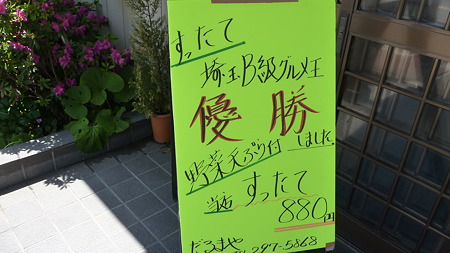 すったて
埼玉B級グルメ王
優勝
野菜天ぷら付しました。
当店すったて
880円
だるまや
297-5868